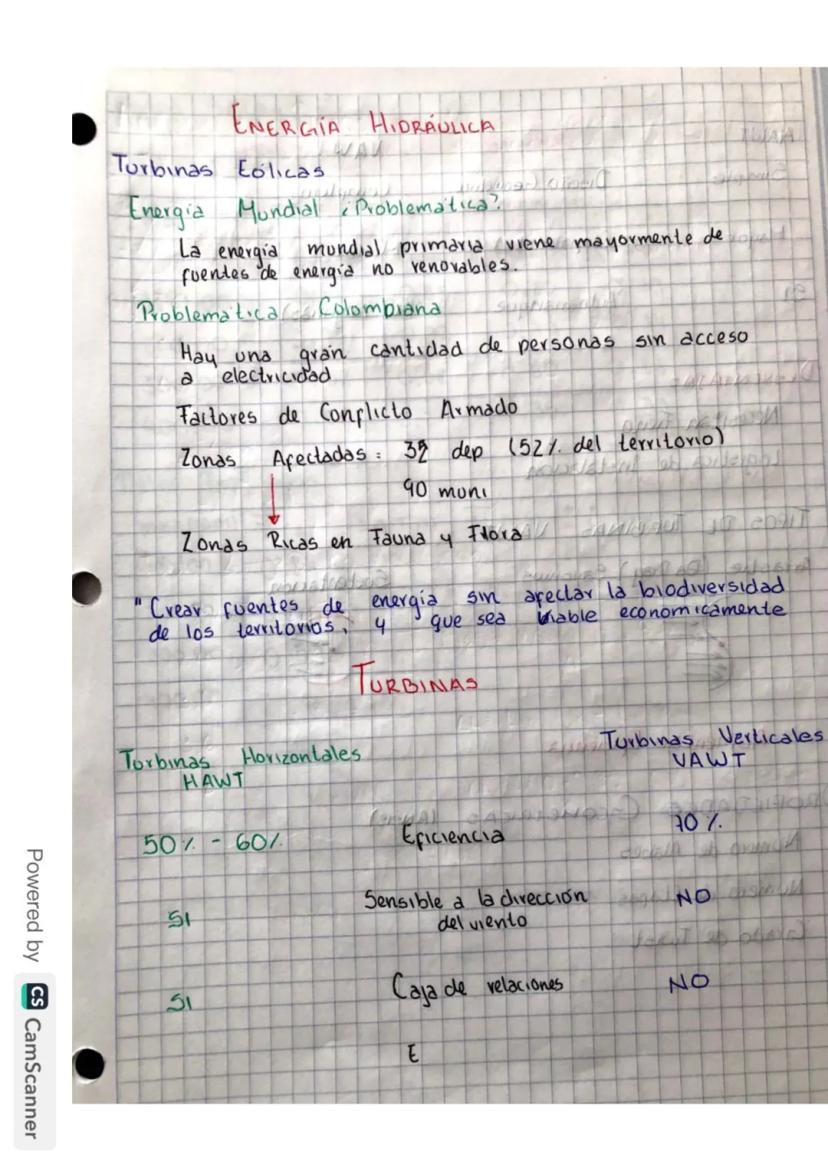 ENERGÍA HIDRÁULICA
Turbinas Eólicas
Energía Mundial ¿Problemática?
La energía mundial primaria viene mayormente de
fuentes de energía no renovables.
Problemática Colombiana
Hay una gran cantidad de personas sin acceso
a electricidad
Factores de Conflicto Armado
Zonas Afectadas: 32 dep (52% del territorio)
90 muni
Zonas Ricas en Fauna y Flora
"Crear fuentes de energía sin afectar la biodiversidad
de los territorios, y que sea viable economicamente
TURBINAS
Turbinas Horizontales
HAWT
Turbinas Verticales
VAWT
50% - 60% Eficiencia 70%
SI Sensible a la dirección del viento NO
SI Caja de relaciones NO
E
Powered by CS CamScanner